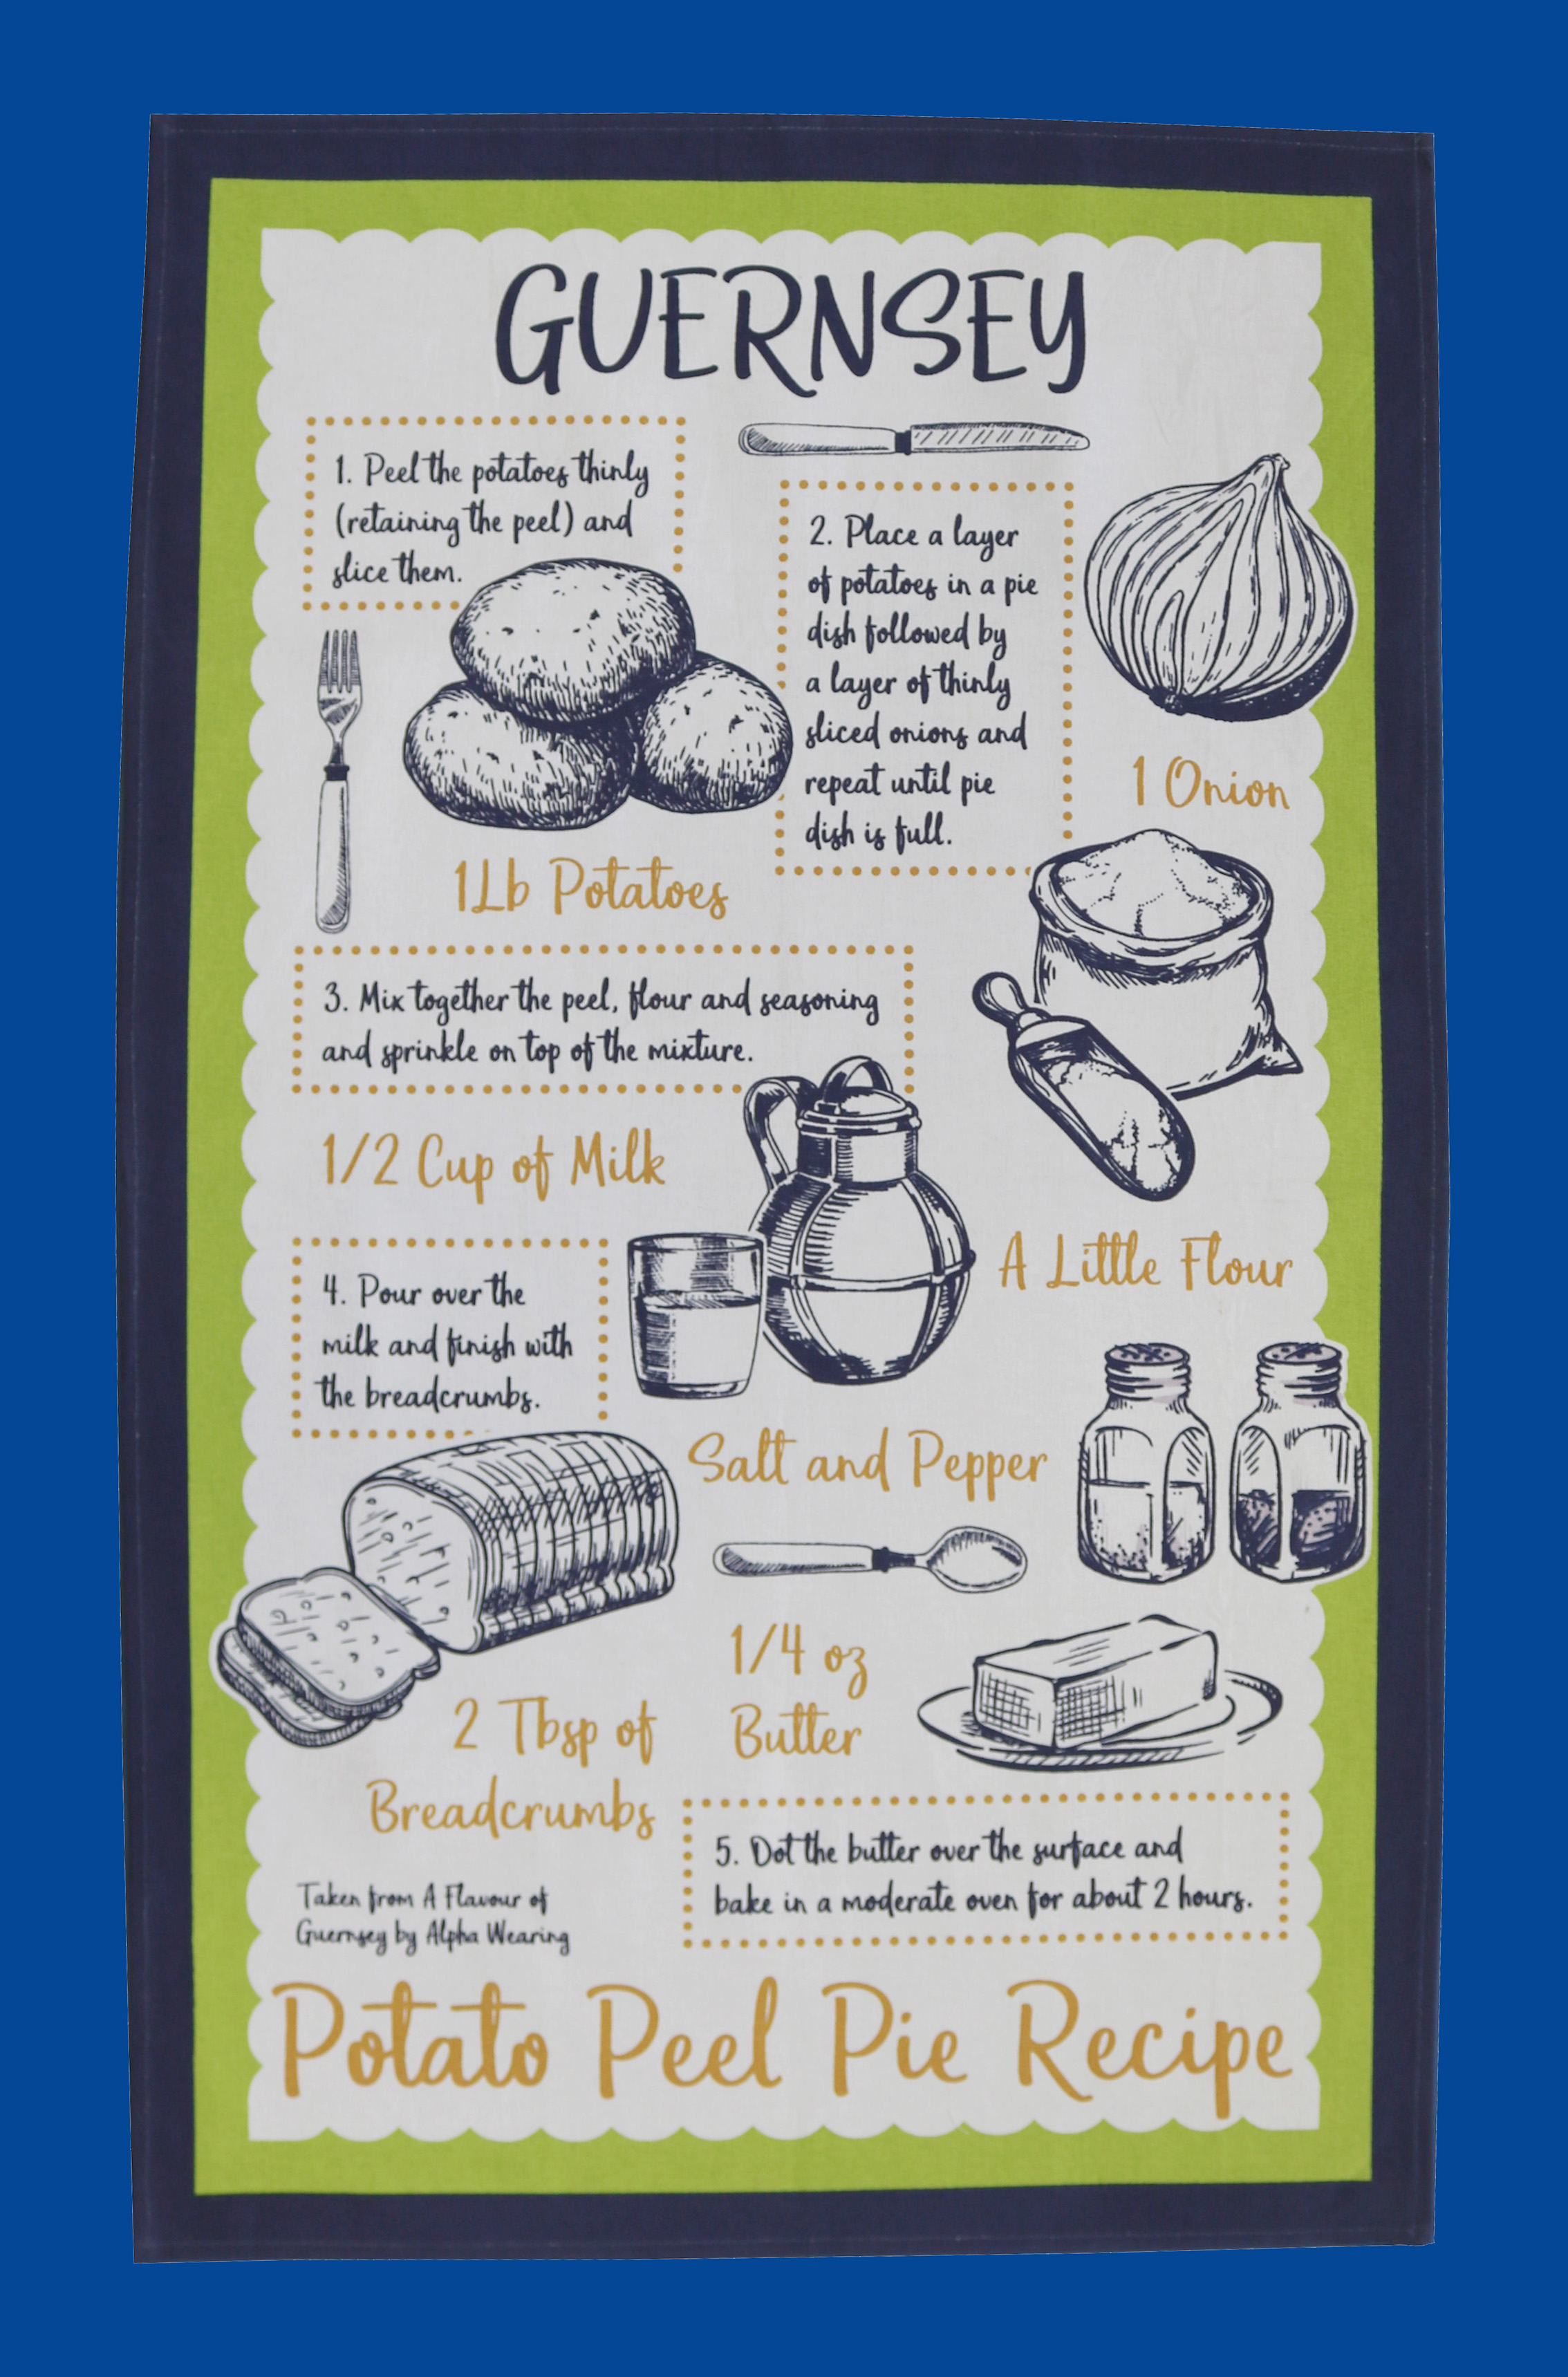 GUERNSEY
1. Peel the potatoes thinly
(retaining the peel) and
slice them.
2. Place a layer
of potatoes in a pie
dish followed by
a layer of thinly
sliced onions and
repeat until pie
dish is full.
1 Onion
1Lb Potatoes
3. Mix together the peel, flour and seasoning
and sprinkle on top of the mixture.
1/2 Cup of Milk
A Little Flour
4. Pour over the
milk and finish with
the breadcrumbs.
Salt and Pepper
1/4 oz
Butter
2 Tbsp of
Breadcrumbs
5. Dot the butter over the surface and
bake in a moderate oven for about 2 hours.
Taken from A Flavour of
Guernsey by Alpha Wearing
Potato Peel Pie Recipe